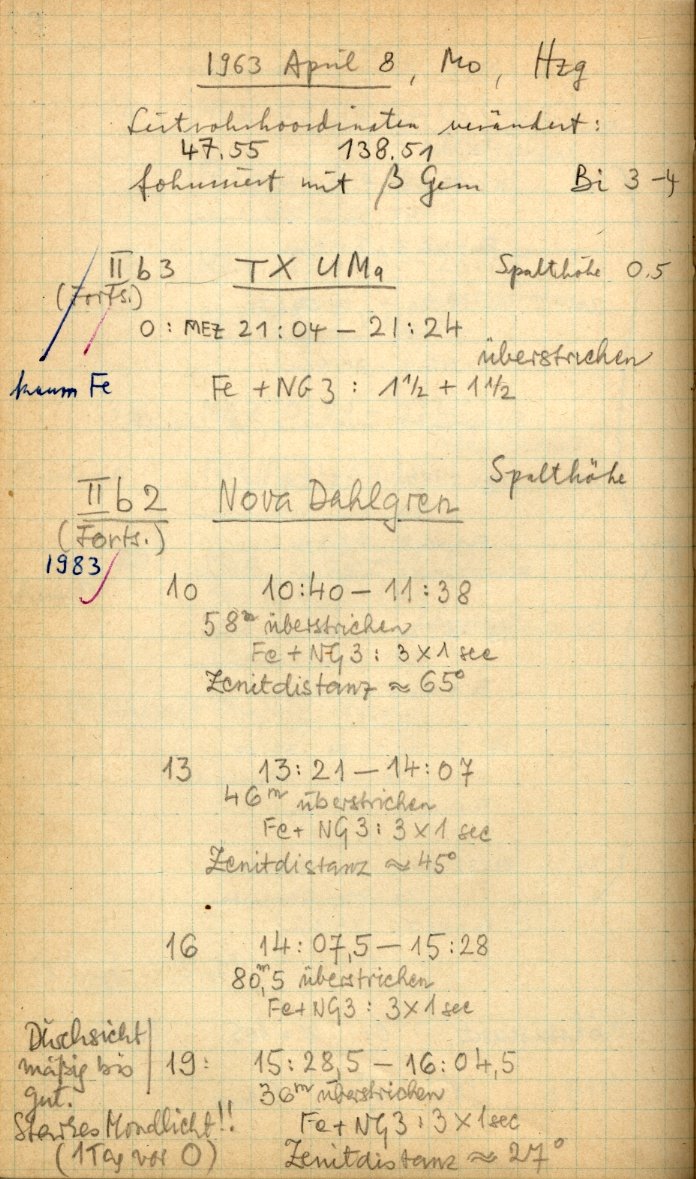 1963 April 8, Mo, Hzg
Leitrohrkoordinaten verändert:
47.55 138.51
fokussiert mit β Gem Bi 3-4
IIb3 TX UMa Spalthöhe 0.5
(Forts.)
0: MEZ 21:04 – 21:24
überstrichen
kaum Fe
Fe + NG3: 1½ + 1½
IIb2 Nova Dahlgren Spalthöhe
(Forts.)
1983
10 10:40 – 11:38
58m überstrichen
Fe + NG3: 3×1 sec
Zenitdistanz ≈ 65°
13 13:21 – 14:07
46m überstrichen
Fe + NG3: 3×1 sec
Zenitdistanz ≈ 45°
16 14:07,5 – 15:28
80m,5 überstrichen
Fe + NG3: 3×1 sec
Durchsicht
mäßig bis
gut.
Starkes Mondlicht!!
(1 Tag vor O)
19: 15:28,5 – 16:04,5
36m überstrichen
Fe + NG3: 3×1 sec
Zenitdistanz ≈ 27°